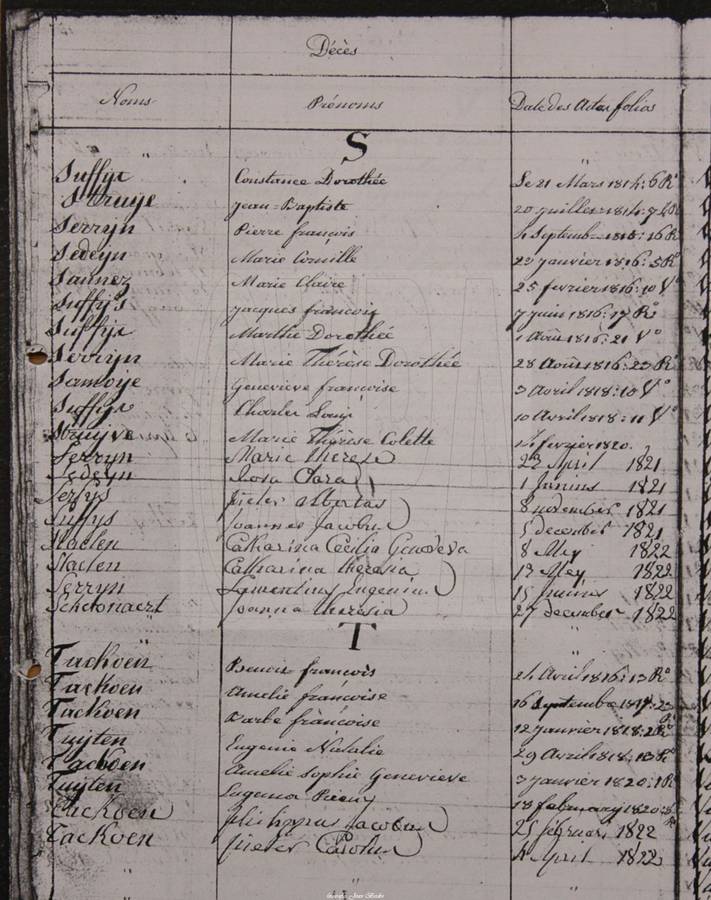 Décès
Noms Prénoms Date des Actes folios
S
Suffys Constance Dorothée Le 21 Mars 1814: 6 Ro
Struye Jean=Baptiste 20 juillet 1814: 7
Serryn Pierre françois 4 Septembre 16 Ro
Sedeyn Marie Cornille 22 janvier 1816: 5 Ro
Sannez Marie Claire 25 fevrier 1816: 10 Vo
Suffys jacques françois 7 juin 1816: 17 Ro
Suffys Marthe Dorothée 1 Août 1816: 21 Vo
Serryn Marie Thérèse Dorothée 28 Août 1816: 23 Ro
Samoije Genevieve françoise 3 Avril 1818: 10 Vo
Suffys Charles Louis 10 Avril 1818: 11 Vo
Struijve Marie Thérèse Colette fevrier 1820.
Serryn Marie therese 23 April 1821
Sedeyn Rosa Clara 1 Junius 1821
Serfys Pieter albertus 8 november 1821
Suffys Joannes Jacobus 5 december 1821
Staelen Catharina Cecilia Genoveva 8 Mey 1822
Staelen Catharina theresia 13 Mey 1822
Serryn Eugenius 15 junius 1822
Schoonaert Joanna theresia 27 december 1822
T
Tackoen Benoit françois 24 Avril 1816: 13 Ro
Tackoen Amelie françoise 16 Septembre 1817: 23
Tackoen Barbe françoise 12 janvier 1818: 2 Ro
Tuyten Eugenie Natalie 29 Avril 1818: 13 Ro
Tackoen Amelie Sophie Genevieve 3 janvier 1820: 1 Ro
Tuyten Eugenia 18 february 1820:
Tackoen Philippus Jacobus 25 februari 1822
Tackoen Pieter Carolus 4 April 1822